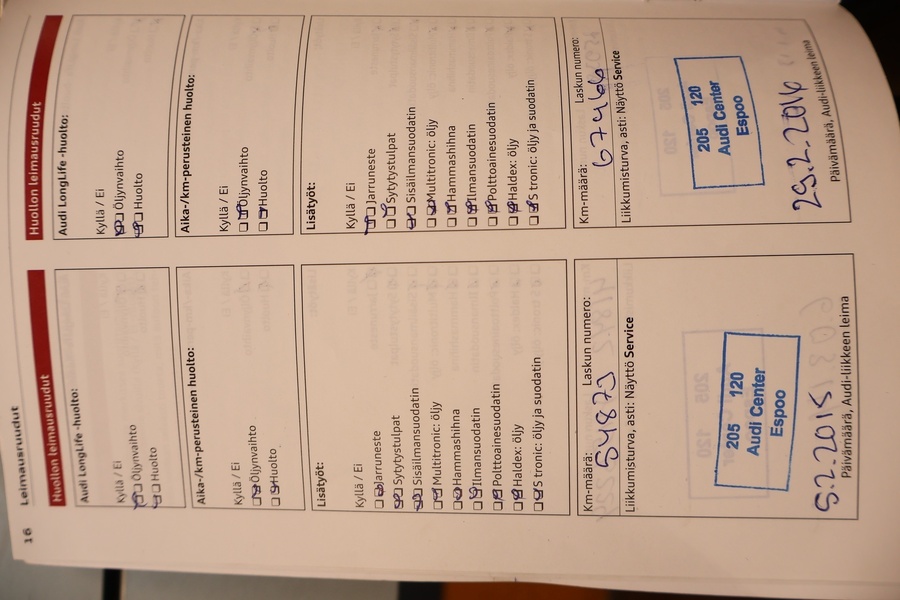 16 Leimausruudut
Huollon leimausruudut
Audi LongLife -huolto:
Kyllä / Ei
Öljynvaihto
Huolto
Aika-/km-perusteinen huolto:
Kyllä / Ei
Öljynvaihto
Huolto
Lisätyöt:
Kyllä / Ei
Jarruneste
Sytytystulpat
Sisäilmansuodatin
Multitronic: öljy
Hammashihna
Ilmansuodatin
Polttoainesuodatin
Haldex: öljy
S tronic: öljy ja suodatin
Km-määrä: Laskun numero:
54873
Liikkumisturva, asti: Näyttö Service
205 120
Audi Center
Espoo
5.2.2015
Päivämäärä, Audi-liikkeen leima
Huollon leimausruudut
Audi LongLife -huolto:
Kyllä / Ei
Öljynvaihto
Huolto
Aika-/km-perusteinen huolto:
Kyllä / Ei
Öljynvaihto
Huolto
Lisätyöt:
Kyllä / Ei
Jarruneste
Sytytystulpat
Sisäilmansuodatin
Multitronic: öljy
Hammashihna
Ilmansuodatin
Polttoainesuodatin
Haldex: öljy
S tronic: öljy ja suodatin
Km-määrä: Laskun numero:
67466
Liikkumisturva, asti: Näyttö Service
205 120
Audi Center
Espoo
25.2.2016
Päivämäärä, Audi-liikkeen leima